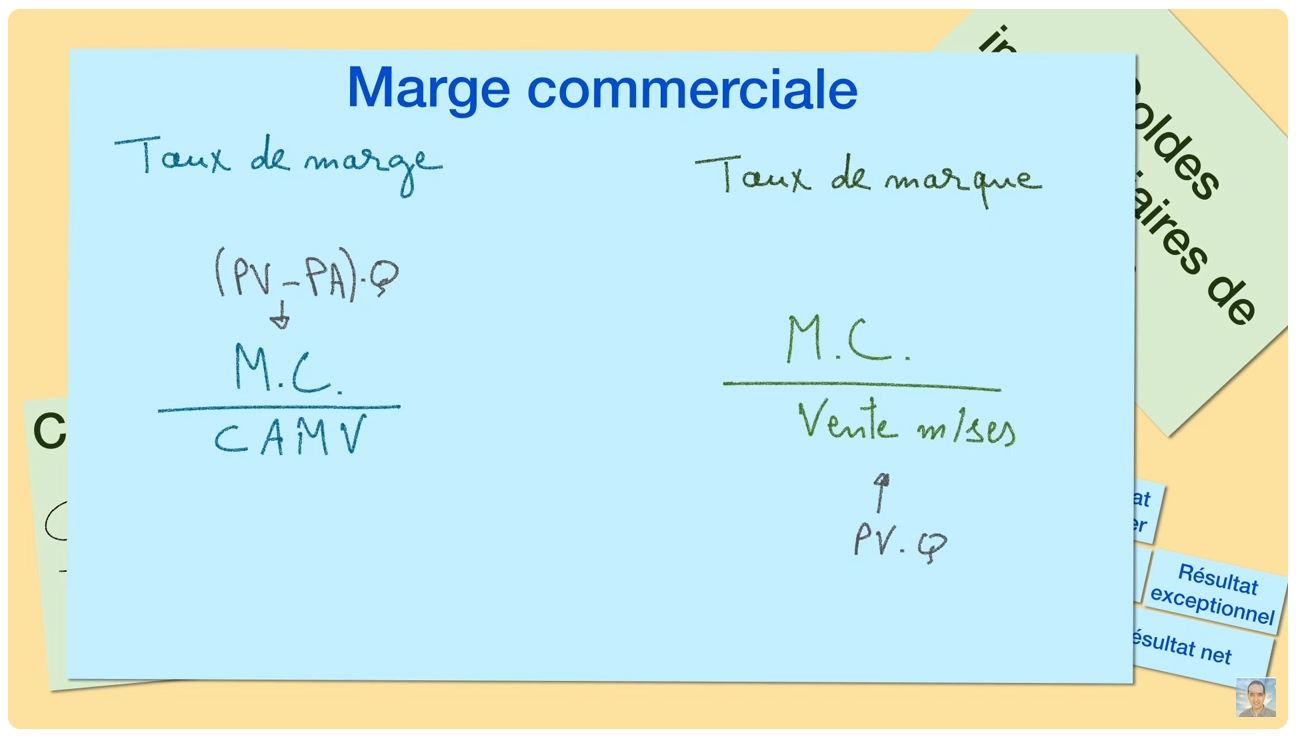 Marge commerciale
Taux de marge
(PV-PA).Q
M.C.
CAMV
Taux de marque
M.C.
Vente m/ses
PV.Q
oldes
iaires de
in
C
at
er
Résultat
exceptionnel
ésultat net